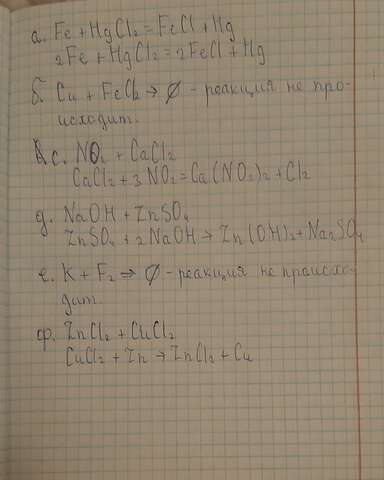 а. Fe + HgCl2 = FeCl + Hg
2Fe + HgCl2 = 2FeCl + Hg
б. Cu + FeCl2 → ∅ - реакция не про-
исходит.
с. NO2 + CaCl2
CaCl2 + 3NO2 = Ca(NO2)2 + Cl2
д. NaOH + ZnSO4
ZnSO4 + 2NaOH → Zn(OH)2 + Na2SO4
е. K + F2 → ∅ - реакция не происхо-
дит.
ф. ZnCl2 + CuCl2
CuCl2 + Zn → ZnCl2 + Cu